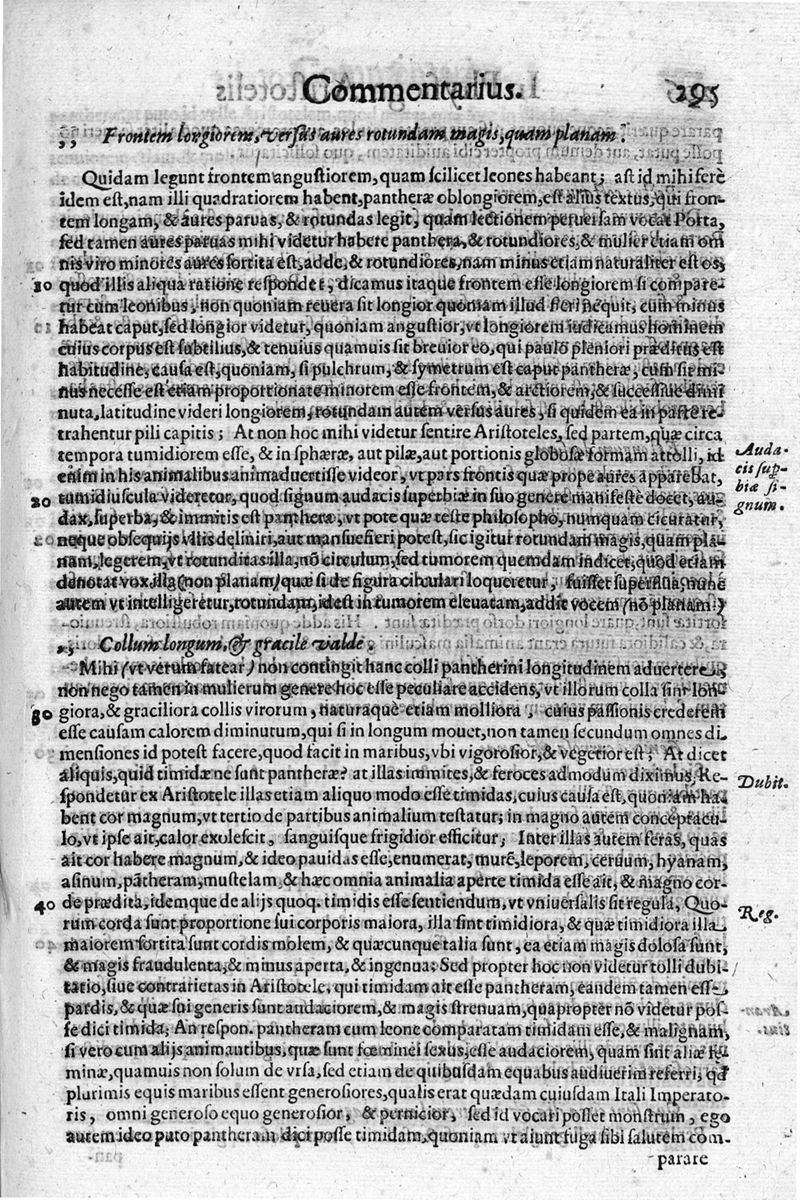 Commentarius. 295
,, Frontem longiorem, versùs aures rotundam magis, quam planam.
Quidam legunt frontem angustiorem, quam scilicet leones habeant; ast id mihi ferè
idem est, nam illi quadratiorem habent, pantheræ oblongiorem, est alius textus, qui fron-
tem longam, & aures paruas, & rotundas legit, quam lectionem peruersam vocat Porta,
sed tamen aures paruas mihi videtur habere panthera, & rotundiores, & mulier etiam om
nis viro minores aures sortita est, adde, & rotundiores, nam minus etiam naturaliter est os,
10 quod illis aliqua ratione respondet; dicamus itaque frontem esse longiorem si compare-
tur cum leonibus, non quoniam reuera sit longior quoniam illud fieri nequit, cum minus
habeat caput, sed longior videtur, quoniam angustior, vt longiorem iudicamus hominem
cuius corpus est subtilius, & tenuius quamuis sit breuior eo, qui paulò pleniori præditus est
habitudine, causa est, quoniam, si pulchrum, & symetrum est caput pantheræ, cum sit mi
nus necesse est etiam proportionate minorem esse frontem, & arctiorem, & successiue dimi
nuta, latitudine videri longiorem, rotundam autem versus aures, si quidem ea in parte re-
trahentur pili capitis; At non hoc mihi videtur sentire Aristoteles, sed partem, quæ circa
tempora tumidiorem esse, & in sphæræ, aut pilæ, aut portionis globosæ formam attolli, id
enim in his animalibus animaduertisse videor, vt pars frontis quæ prope aures apparebat,
20 tumidiuscula videretur, quod signum audacis superbiæ in suo genere manifestè docet, au-
dax, superba, & immitis est panthera, vt pote quæ teste philosopho, numquam cicuratur,
neque obsequijs vllis deliniri, aut mansuefieri potest, sic igitur rotundam magis, quam pla-
nam, legerem, vt rotunditas illa, nõ circulum, sed tumorem quemdam indicet, quod etiam
denotat vox illa (non planam) quæ si de figura circulari loqueretur, fuisset superflua, nunc
autem vt intelligeretur, rotundam, idest in tumorem eleuatam, addit vocem (nõ planam.)
Audacis superbiæ signum.
,, Collum longum, & gracile valde.
Mihi (vt verum fatear) non contingit hanc colli pantherini longitudinem aduertere,
non nego tamen in mulierum genere hoc esse peculiare accidens, vt illorum colla sint lon
30 giora, & graciliora collis virorum, naturaque etiam molliora, cuius passionis crederem
esse causam calorem diminutum, qui si in longum mouet, non tamen secundum omnes di
mensiones id potest facere, quod facit in maribus, vbi vigorosior, & vegetior est; At dicet
aliquis, quid timidæ ne sunt pantheræ? at illas immites, & feroces admodum diximus, Re-
Dubit.
spondetur ex Aristotele illas etiam aliquo modo esse timidas, cuius causa est, quoniam ha
bent cor magnum, vt tertio de partibus animalium testatur; in magno autem conceptacu
lo, vt ipse ait, calor exolescit, sanguisque frigidior efficitur, Inter illas autem feras, quas
ait cor habere magnum, & ideo pauidas esse, enumerat, murẽ, leporem, ceruum, hyanam,
asinum, pãtheram, mustelam, & hæc omnia animalia aperte timida esse ait, & magno cor-
40 de prædita, idemque de alijs quoq. timidis esse sentiendum, vt vniuersalis sit regula, Quo-
Reg.
rum corda sunt proportione sui corporis maiora, illa sint timidiora, & quæ timidiora illa
maiorem sortita sunt cordis molem, & quæcunque talia sunt, ea etiam magis dolosa sunt,
& magis fraudulenta, & minus aperta, & ingenua: Sed propter hoc non videtur tolli dubi-
tatio, siue contrarietas in Aristotele, qui timidam ait esse pantheram, eandem tamen esse
pardis, & quæ sui generis sunt audaciorem, & magis strenuam, quapropter nõ videtur pos-
se dici timida, An respon. pantheram cum leone comparatam timidam esse, & malignam,
si vero cum alijs animantibus, quæ sunt fœminei sexus, esse audaciorem, quam sint aliæ fœ
minæ, quamuis non solum de vrsa, sed etiam de quibusdam equabus audiuerim referri, qd
plurimis equis maribus essent generosiores, qualis erat quædam cuiusdam Itali Imperato-
ris, omni generoso equo generosior, & pernicior, sed id vocari posset monstrum, ego
autem ideo puto pantheram dici posse timidam, quoniam vt aiunt fuga sibi salutem com-
parare